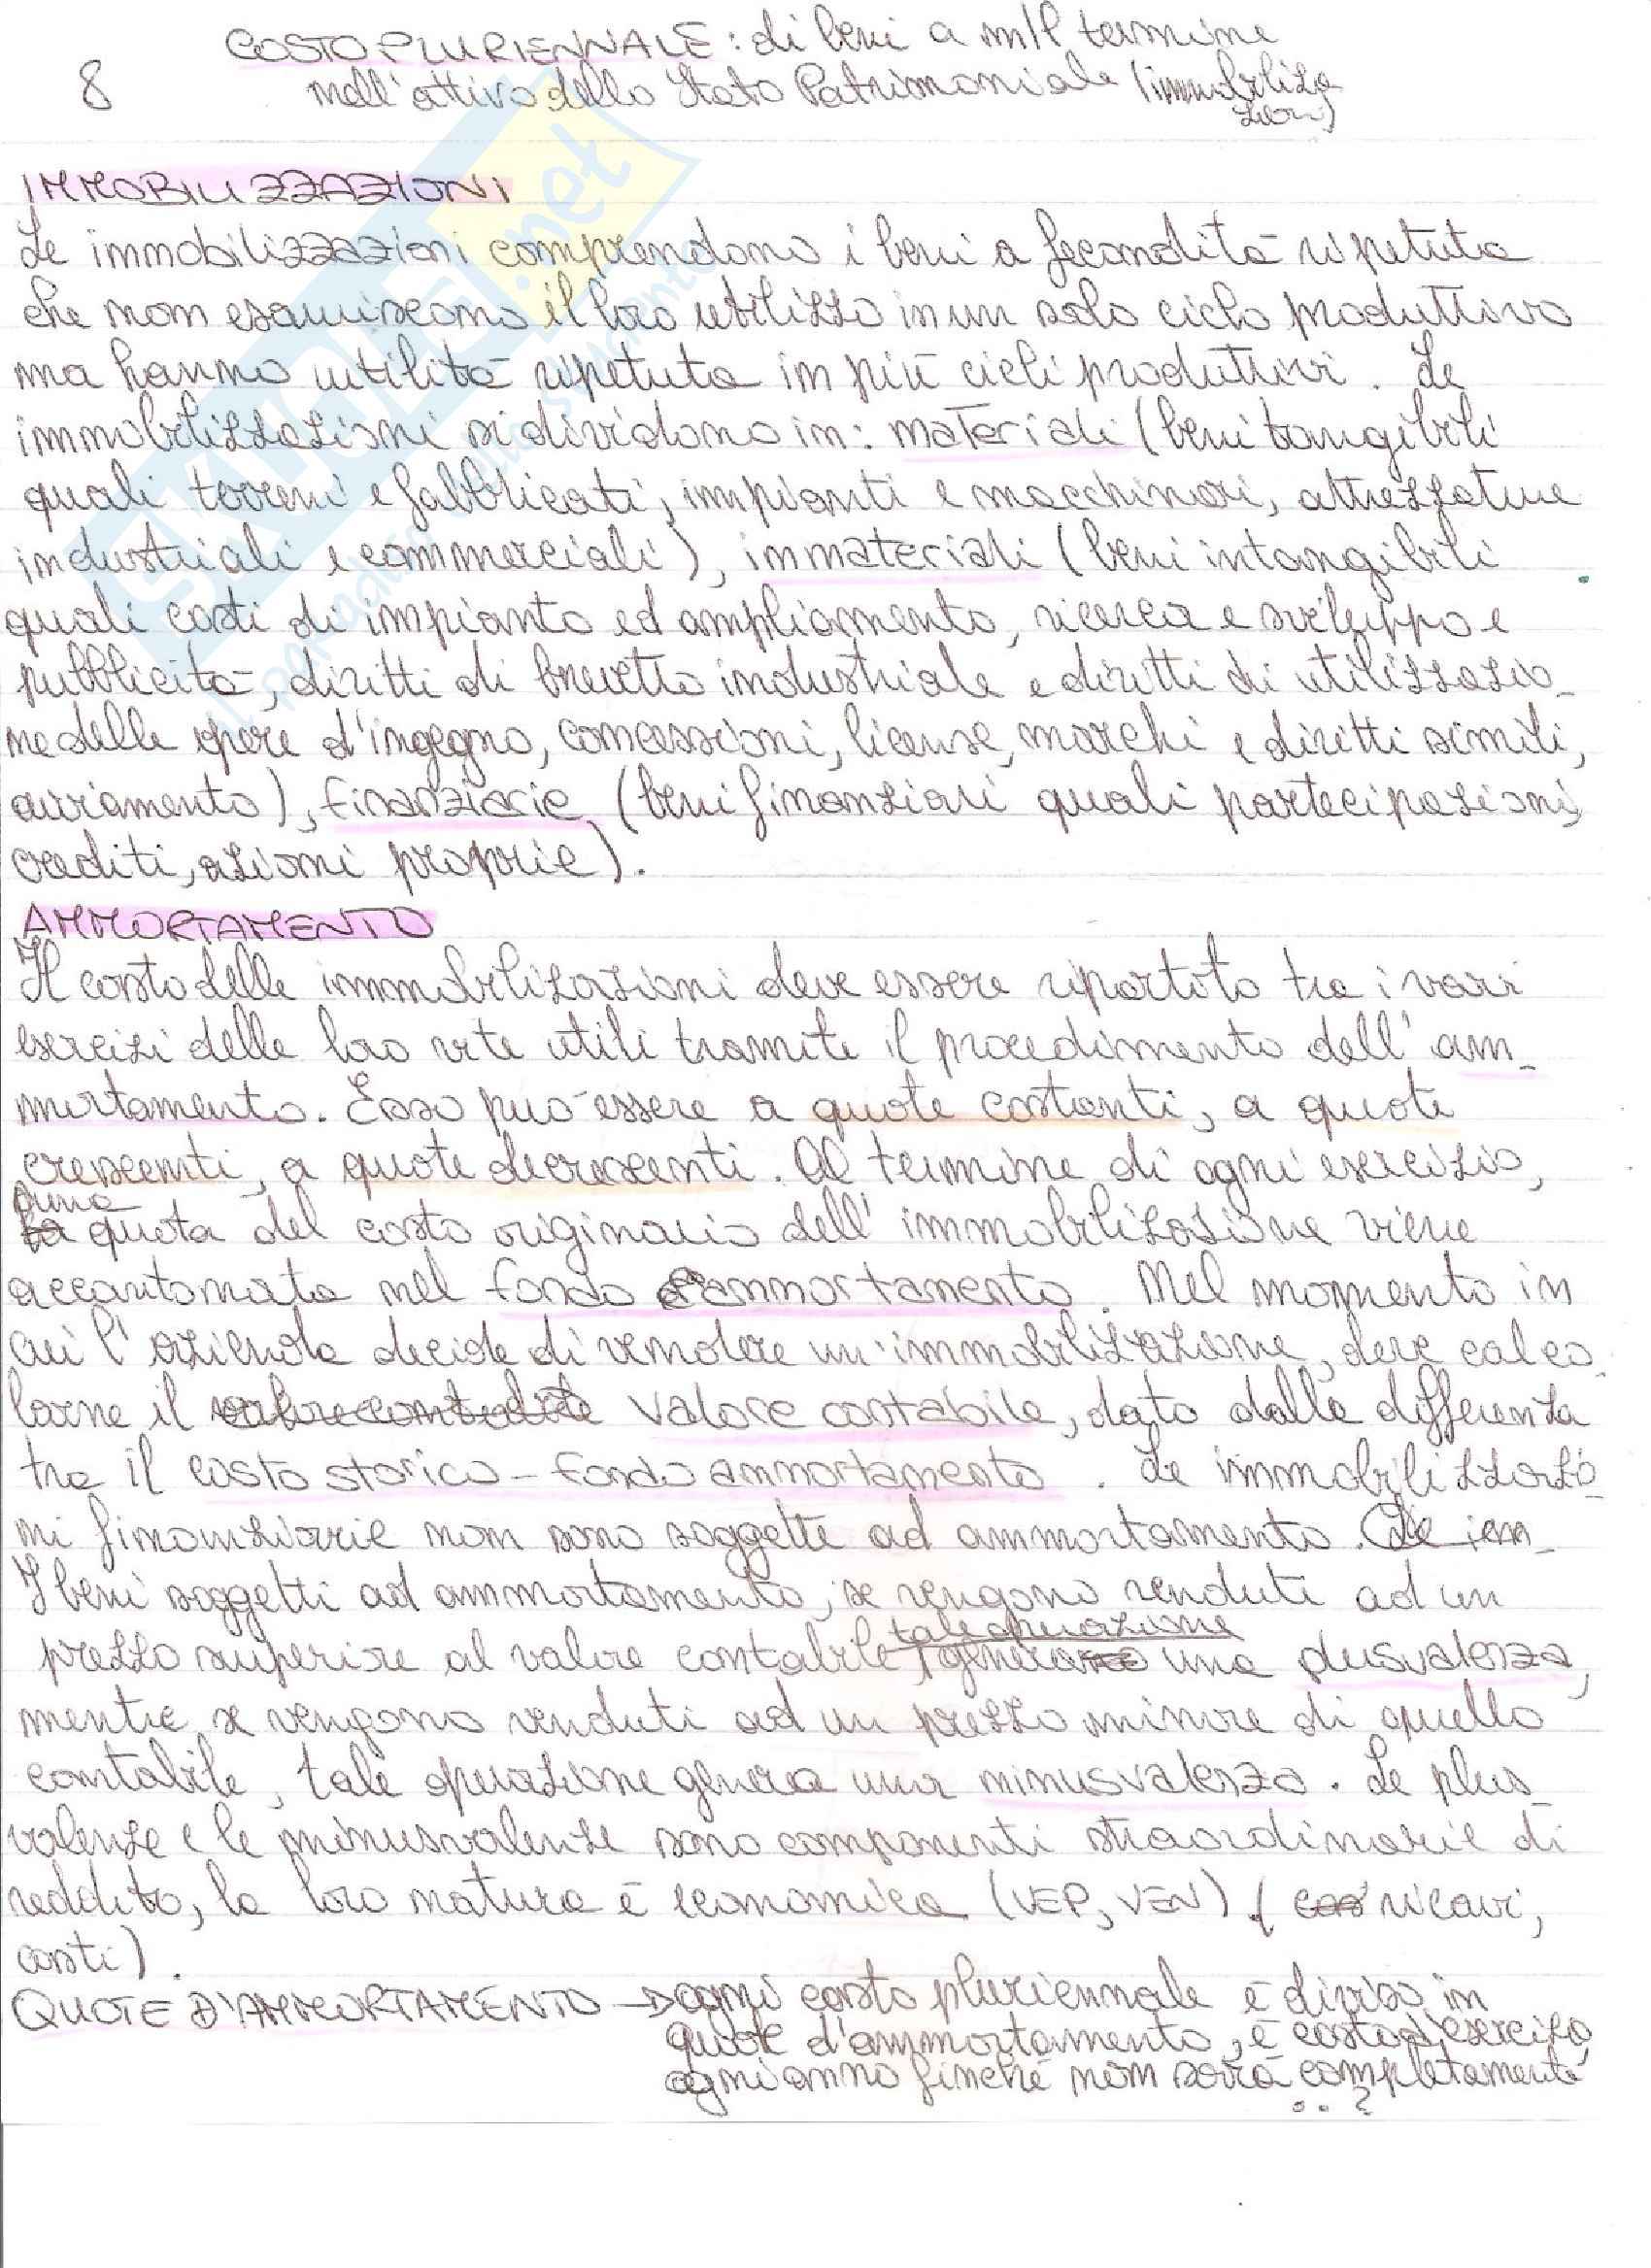 COSTO PLURIENNALE: di beni a m/l termine
8 nell'attivo dello Stato Patrimoniale (immobilizza
zioni)
IMMOBILIZZAZIONI
Le immobilizzazioni comprendono i beni a fecondità ripetuta
che non esauriscono il loro utilizzo in un solo ciclo produttivo
ma hanno utilità ripetuta in più cicli produttivi. Le
immobilizzazioni si dividono in: materiali (beni tangibili
quali terreni e fabbricati, impianti e macchinari, attrezzature
industriali e commerciali), immateriali (beni intangibili
quali costi di impianto ed ampliamento, ricerca e sviluppo e
pubblicità, diritti di brevetto industriale e diritti di utilizzazio-
ne delle opere d'ingegno, concessioni, licenze, marchi e diritti simili,
avviamento), finanziarie (beni finanziari quali partecipazioni,
crediti, azioni proprie).
AMMORTAMENTO
Il costo delle immobilizzazioni deve essere ripartito tra i vari
esercizi delle loro vite utili tramite il procedimento dell'am-
mortamento. Esso può essere a quote costanti, a quote
crescenti, a quote decrescenti. Al termine di ogni esercizio,
una
la quota del costo originario dell'immobilizzazione viene
accantonata nel fondo ammortamento. Nel momento in
cui l'azienda decide di vendere un'immobilizzazione, deve calco
larne il valore contabile, dato dalla differenza
tra il costo storico - fondo ammortamento. Le immobilizzazio-
ni finanziarie non sono soggette ad ammortamento. Le im-
I beni soggetti ad ammortamento, se vengono venduti ad un
tale operazione
prezzo superiore al valore contabile, genera una plusvalenza,
mentre se vengono venduti ad un prezzo minore di quello
contabile, tale operazione genera una minusvalenza. Le plus-
valenze e le minusvalenze sono componenti straordinarie di
reddito, la loro natura è economica (VEP, VEN) ( ricavi,
costi).
QUOTE D'AMMORTAMENTO → ogni costo pluriennale è diviso in
quote d'ammortamento, è costo d'esercizio
ogni anno finché non sarà completamente
..?
SKUOLA.net
il paradiso dello studente